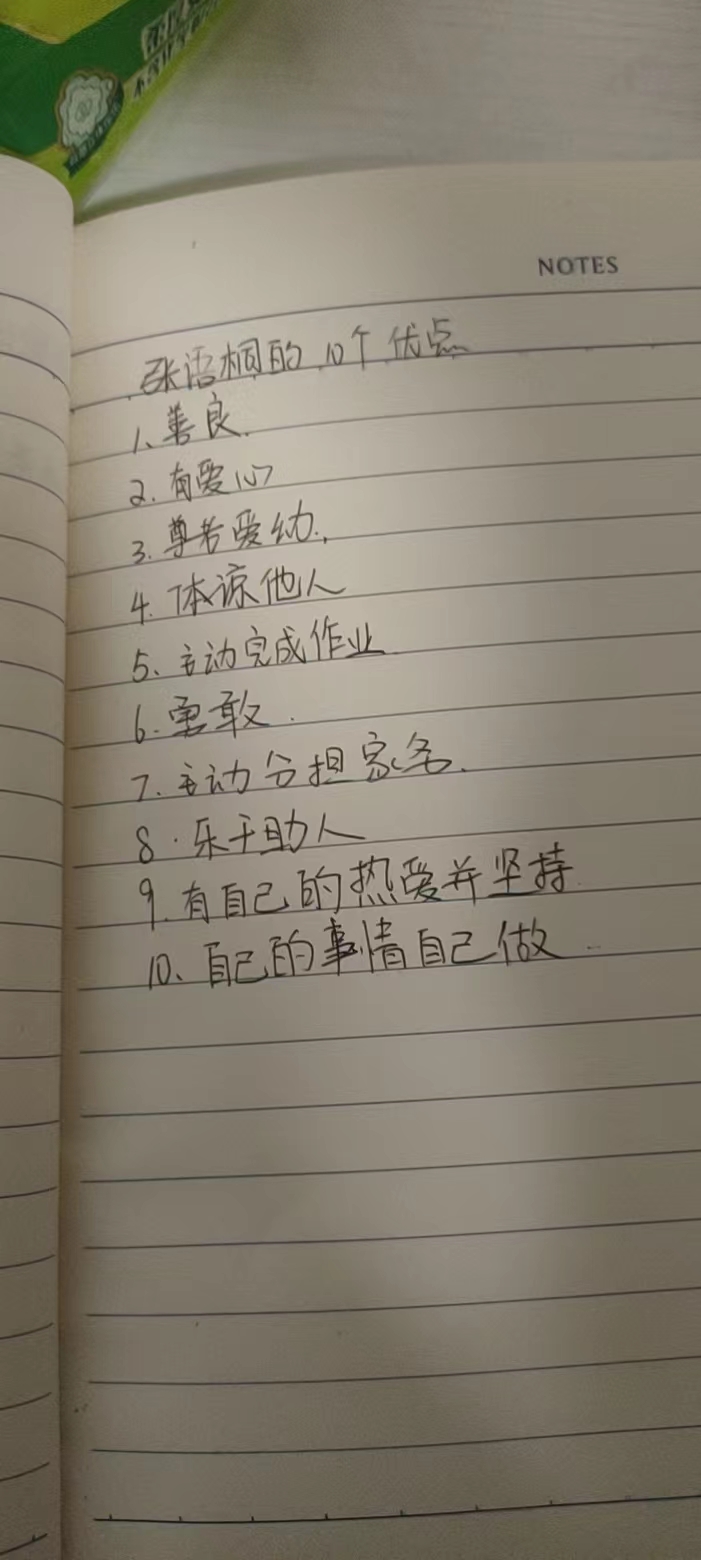 NOTES
张语桐的10个优点
1、善良.
2.有爱心
3.尊老爱幼.
4.体谅他人
5、主动完成作业
6.勇敢.
7.主动分担家务.
8.乐于助人
9.有自己的热爱并坚持
10、自己的事情自己做